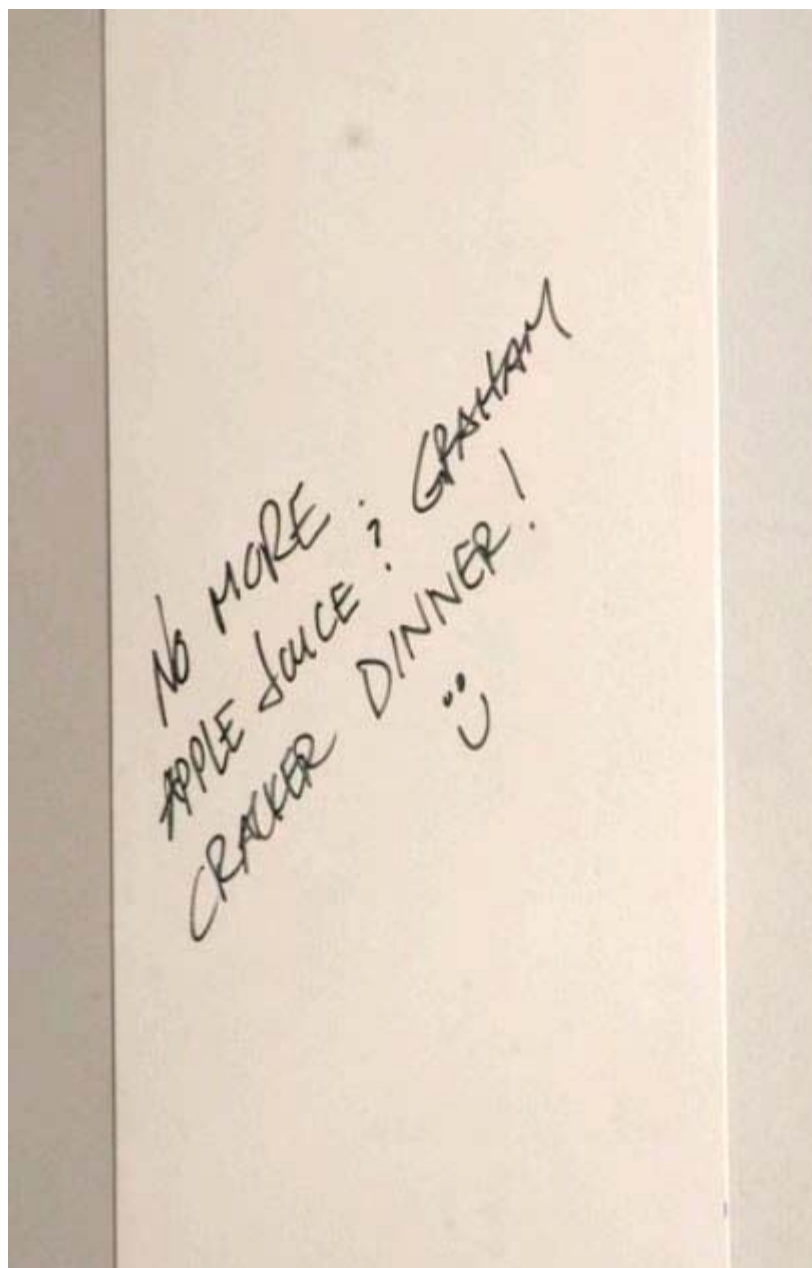 NO MORE
APPLE JUICE & GRAHAM
CRACKER DINNER!
:)